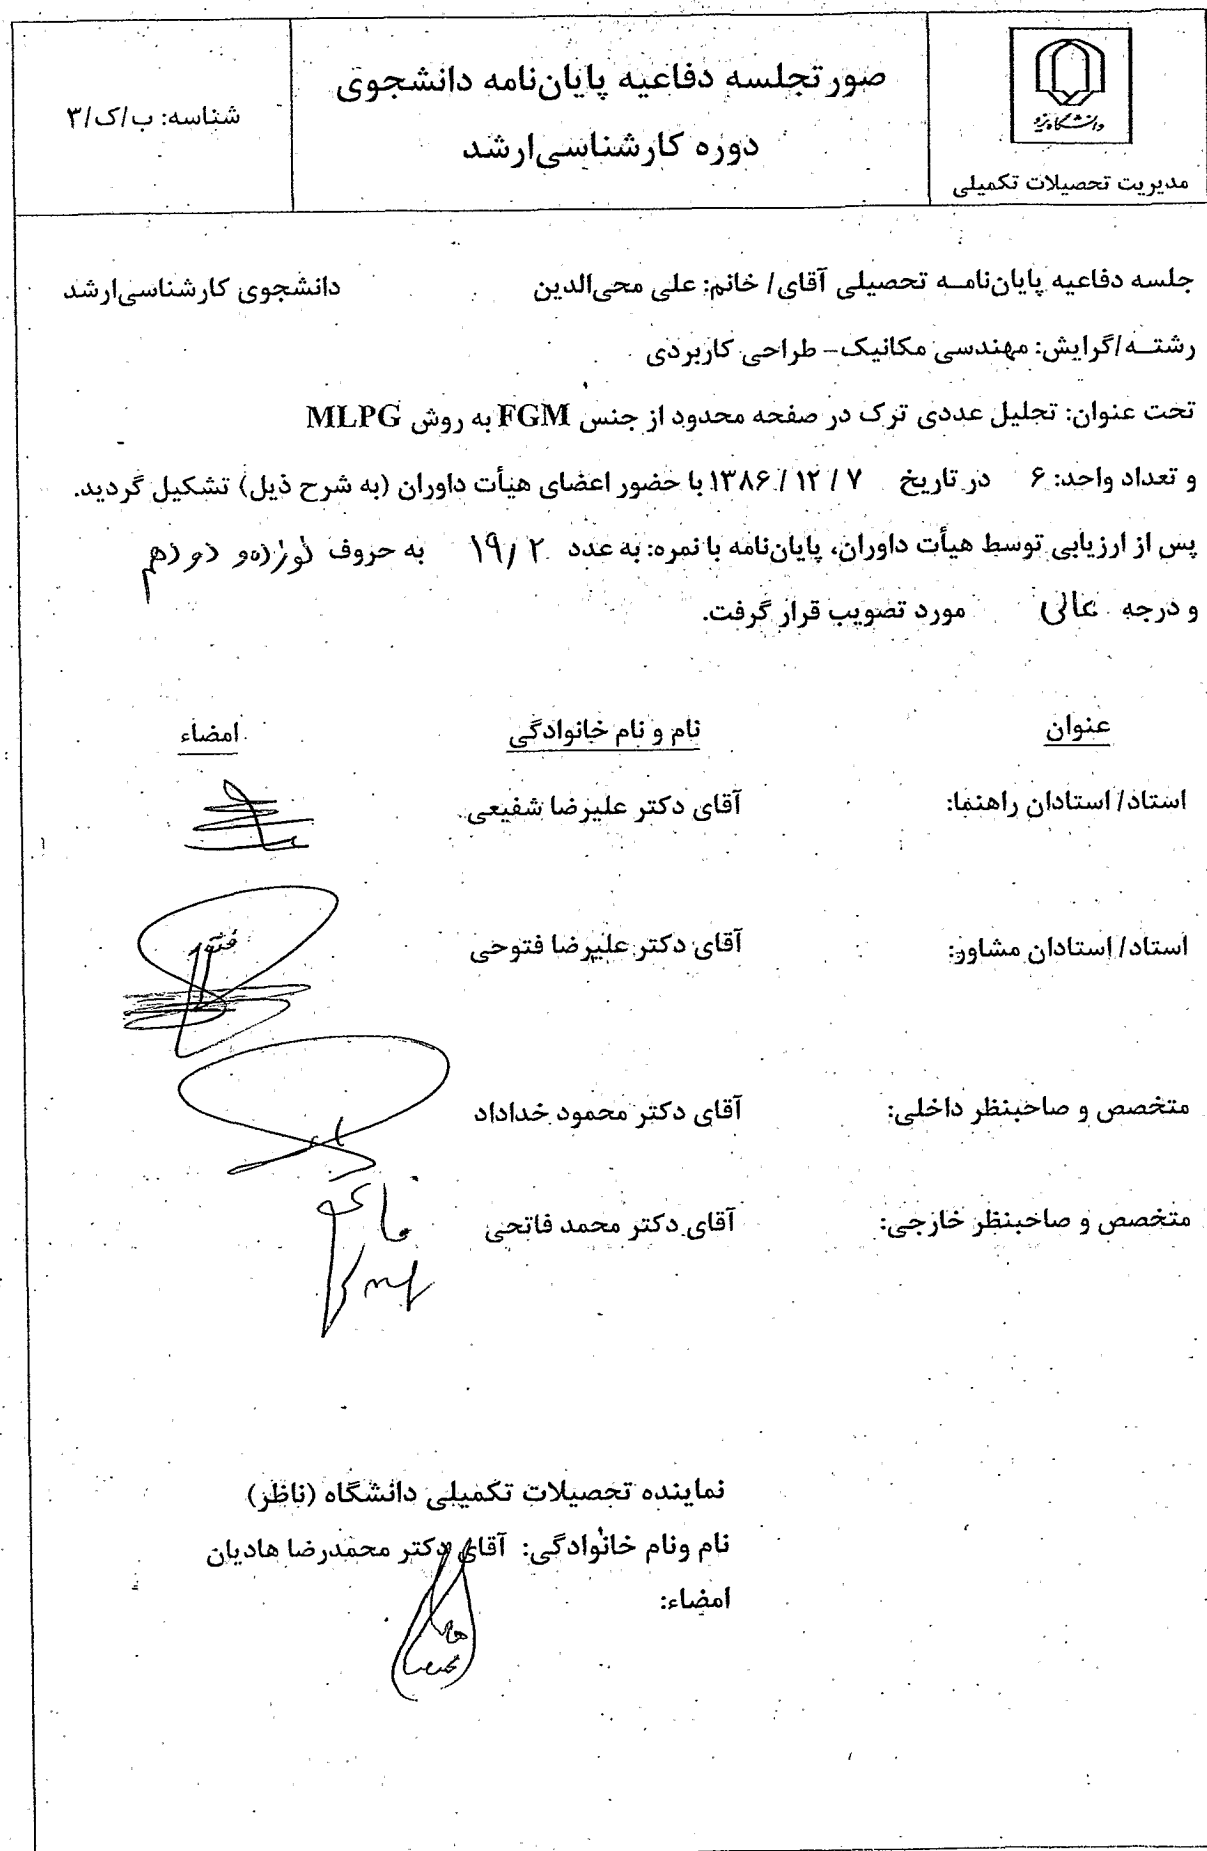 دانشگاه یزد
مدیریت تحصیلات تکمیلی
صورتجلسه دفاعیه پایان‌نامه دانشجوی
دوره کارشناسی‌ارشد
شناسه: ب/ک/۳
جلسه دفاعیه پایان‌نامــه تحصیلی آقای/ خانم: علی محی‌الدین دانشجوی کارشناسی‌ارشد
رشتــه/گرایش: مهندسی مکانیک– طراحی کاربردی
تحت عنوان: تحلیل عددی ترک در صفحه محدود از جنس FGM به روش MLPG
و تعداد واحد: ۶ در تاریخ ۱۳۸۶/۱۲/۷ با حضور اعضای هیأت داوران (به شرح ذیل) تشکیل گردید.
پس از ارزیابی توسط هیأت داوران، پایان‌نامه با نمره: به عدد ۱۹/۲ به حروف نوزده و دو دهم
و درجه عالی مورد تصویب قرار گرفت.
عنوان نام و نام خانوادگی امضاء
استاد/ استادان راهنما: آقای دکتر علیرضا شفیعی
استاد/ استادان مشاور: آقای دکتر علیرضا فتوحی
متخصص و صاحبنظر داخلی: آقای دکتر محمود خداداد
متخصص و صاحبنظر خارجی: آقای دکتر محمد فاتحی
نماینده تحصیلات تکمیلی دانشگاه (ناظر)
نام ونام خانوادگی: آقای دکتر محمدرضا هادیان
امضاء: